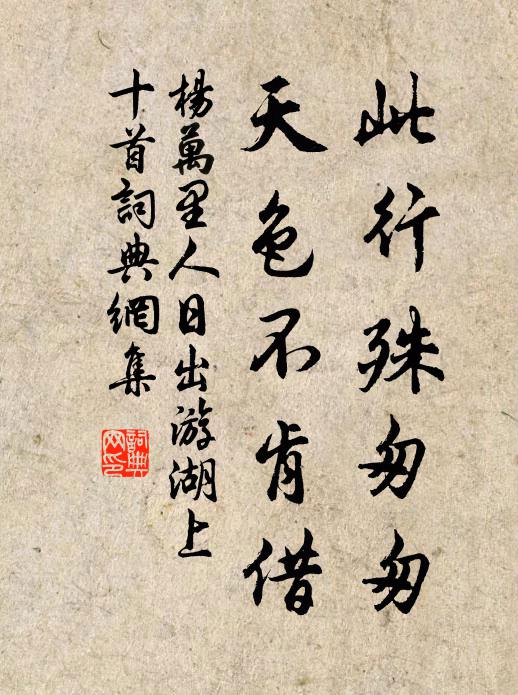 此行殊匆匆
天色不肯借
楊萬里人日出游湖上
十首詞典網集
詞典
网印